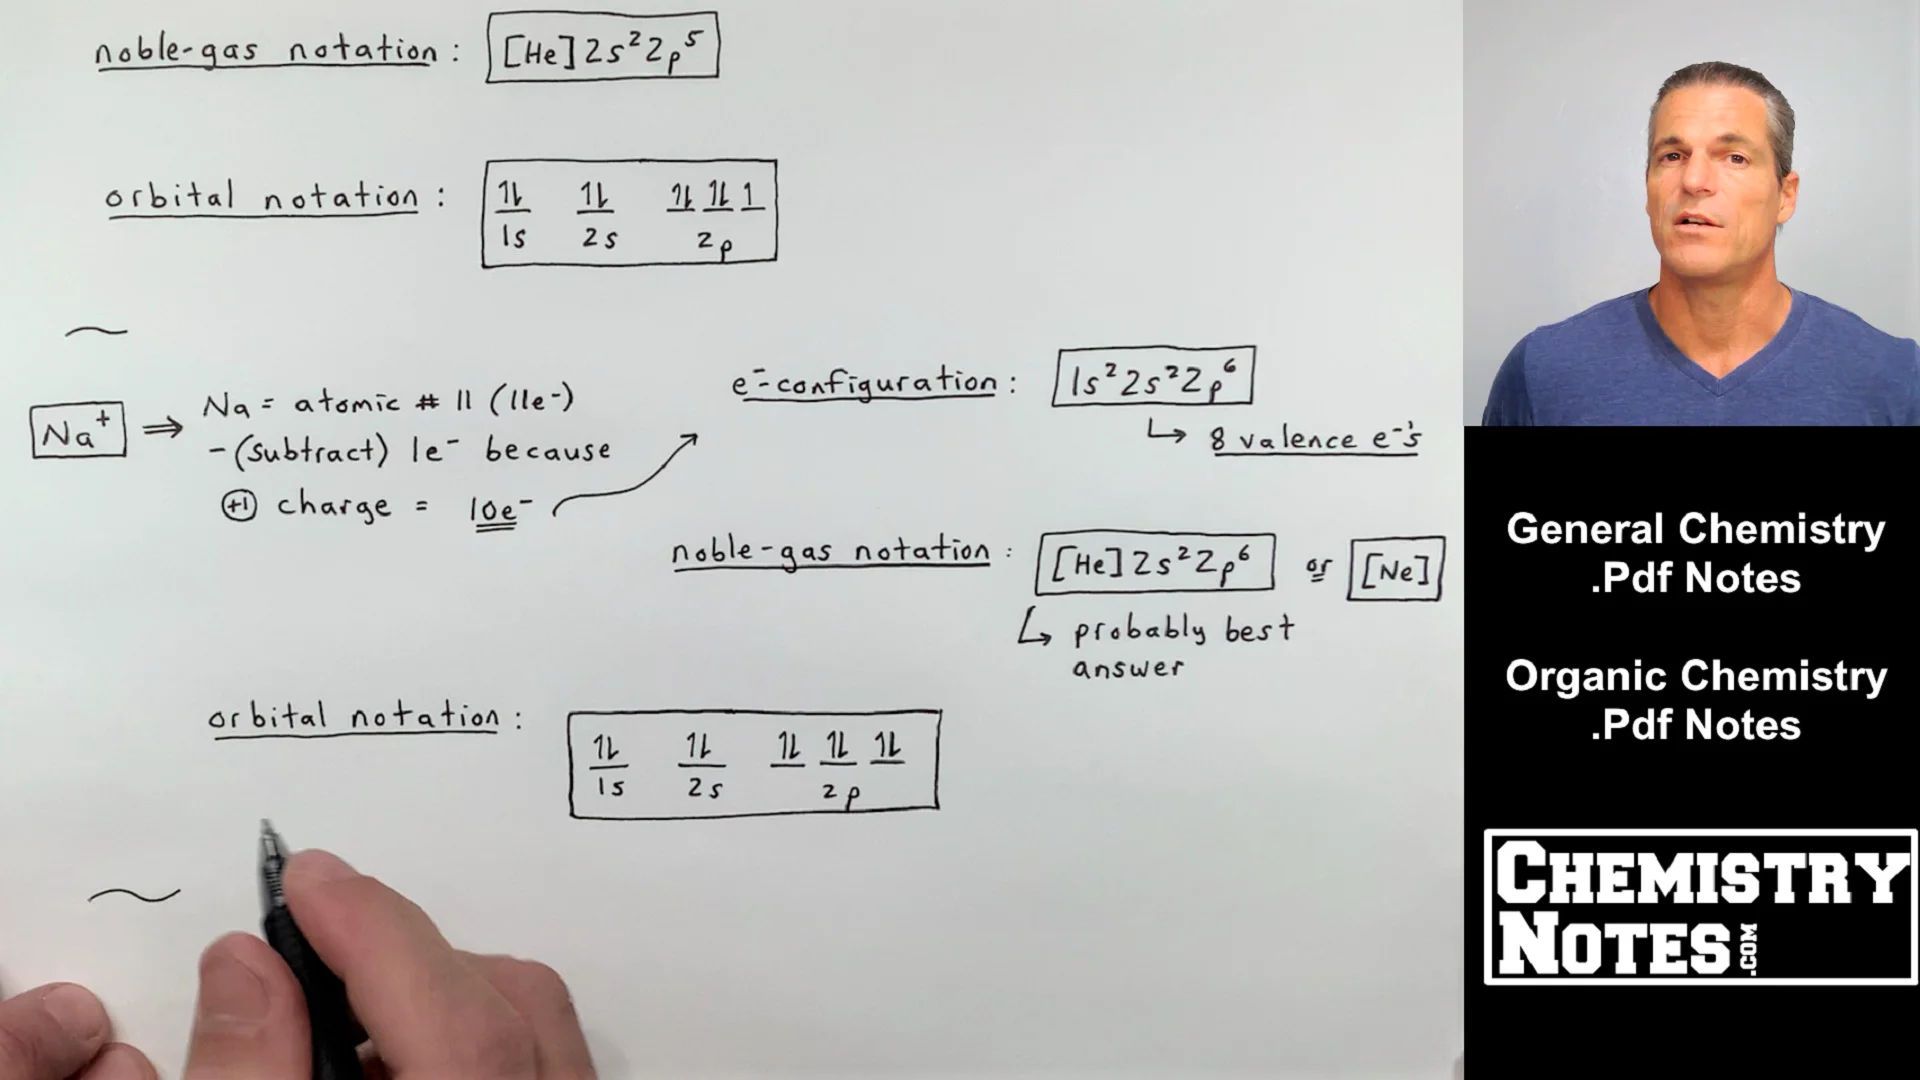 noble-gas notation : [He] 2s² 2p⁵
orbital notation : 1s 2s 2p
Na⁺ ⇒ Na = atomic # 11 (11e-)
- (subtract) 1e⁻ because
+1 charge = 10e⁻
e⁻-configuration : 1s² 2s² 2p⁶
↳ 8 valence e⁻'s
noble-gas notation : [He] 2s² 2p⁶ or [Ne]
↳ probably best
answer
orbital notation : 1s 2s 2p
General Chemistry
.Pdf Notes
Organic Chemistry
.Pdf Notes
CHEMISTRY
NOTES.COM